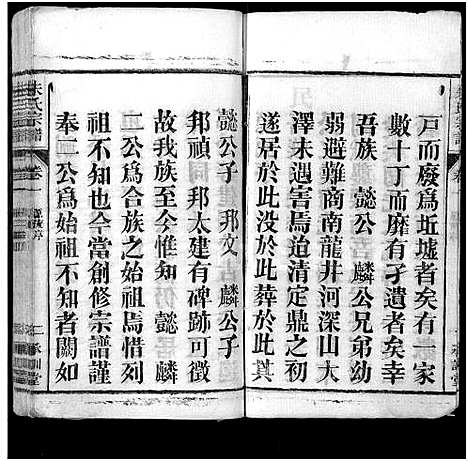 戸而廢爲坵墟者矣有一家
數十丁而靡有孑遺者矣幸
吾族 懿公 麟公兄弟幼
弱避難商南龍井河深山大
澤未遇害焉迨清定鼎之初
遂居於此葬於此其
懿公子 邦文 麟公子
邦禎同邦太建有碑跡可徵
故我族至今惟知 懿 麟
二公爲合族之始祖焉惜列
祖不知也今當創修宗譜謹
奉二公爲始祖不知者闕如
朱氏宗譜
卷一
二
承訓堂